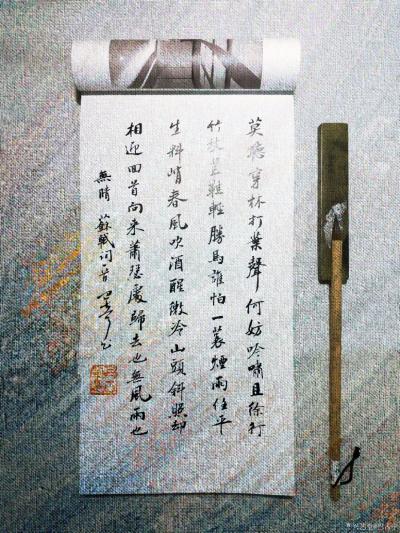 莫聽穿林打葉聲何妨吟嘯且徐行
竹杖芒鞋輕勝馬誰怕一蓑煙雨任平
生料峭春風吹酒醒微冷山頭斜照却
相迎回首向来蕭瑟處歸去也無風雨也
無晴 蘇軾词一首